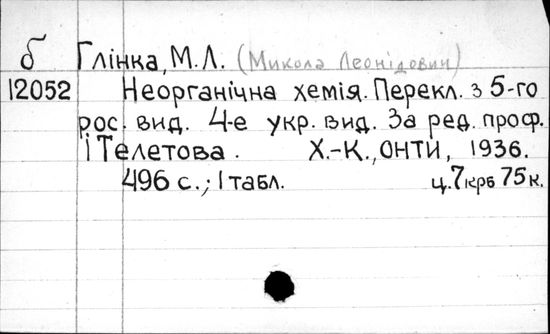 б Глінка, М.Л. (Микола Леонідович)
12052 Неорганічна хемія. Перекл. з 5-го
рос. вид. 4-е укр. вид. За ред. проф.
І Телетова. Х.-К., ОНТИ, 1936.
496 с.; 1 табл. ц. 7 крб 75 к.